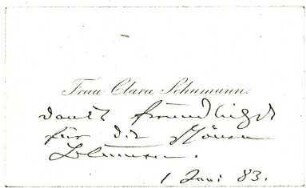 Frau Clara Schumann.
dankt freundlichst
für die schönen
Blumen.
1 Juni 83.